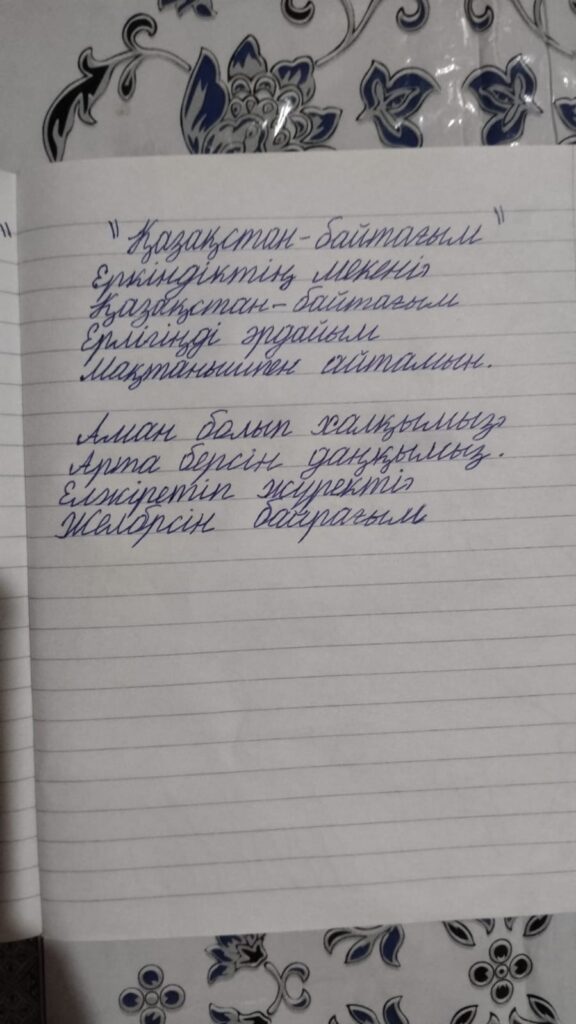 "Қазақстан-байтағым"
Еркіндіктің мекені,
Қазақстан-байтағым
Ерлігіңді әрдайым
Мақтанышпен айтамын.
Аман болып халқымыз,
Арта берсін даңқымыз.
Елжіретіп жүректі,
Желбрсін байрағым.